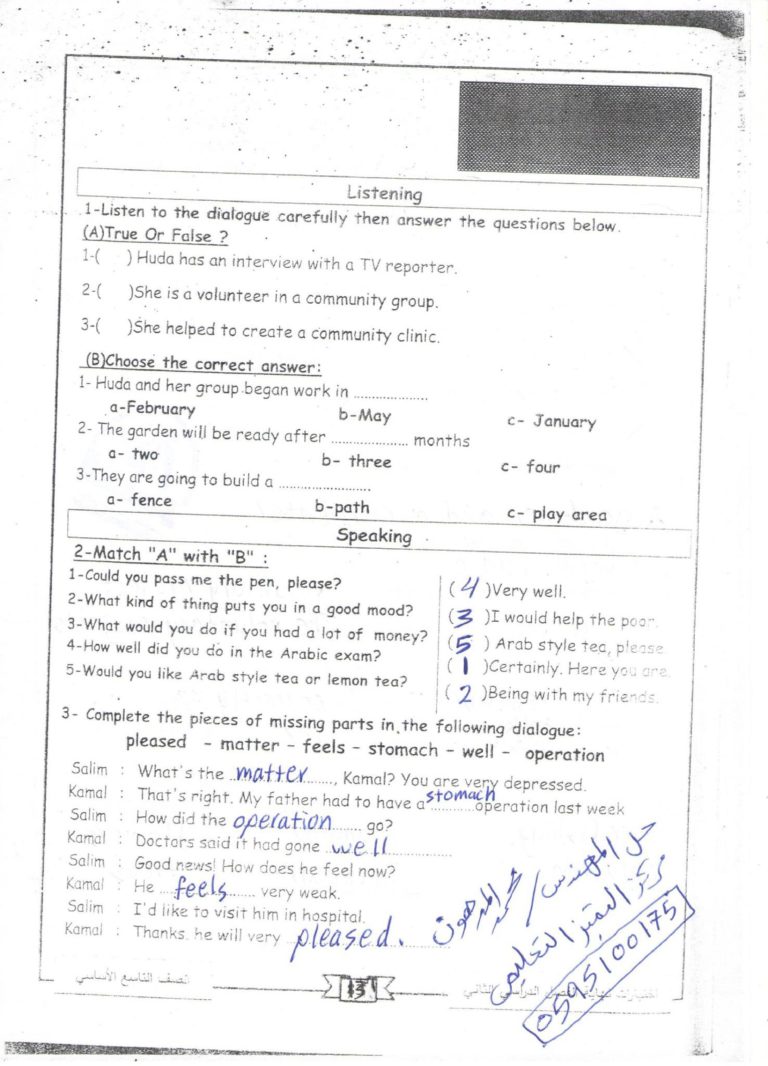 Listening
1-Listen to the dialogue carefully then answer the questions below.
(A)True Or False ?
1-( ) Huda has an interview with a TV reporter.
2-( )She is a volunteer in a community group.
3-( )She helped to create a community clinic.
(B)Choose the correct answer:
1- Huda and her group began work in ....................
a-February b-May c- January
2- The garden will be ready after ..................... months
a- two b- three c- four
3-They are going to build a .........................
a- fence b-path c- play area
Speaking
2-Match "A" with "B" :
1-Could you pass me the pen, please? ( 4 )Very well.
2-What kind of thing puts you in a good mood? ( 3 )I would help the poor.
3-What would you do if you had a lot of money? ( 5 ) Arab style tea, please
4-How well did you do in the Arabic exam? ( 1 )Certainly. Here you are.
5-Would you like Arab style tea or lemon tea? ( 2 )Being with my friends.
3- Complete the pieces of missing parts in the following dialogue:
pleased - matter - feels - stomach - well - operation
Salim : What's the matter, Kamal? You are very depressed.
Kamal : That's right. My father had to have a stomach operation last week
Salim : How did the operation go?
Kamal : Doctors said it had gone well
Salim : Good news! How does he feel now?
Kamal : He feels very weak.
Salim : I'd like to visit him in hospital.
Kamal : Thanks. he will very pleased.
حل المهندس / محمد المدهون
مركز التميز التعليمي
0595100175
الصف التاسع الأساسي
13
اختبارات نهاية الفصل الدراسي الثاني